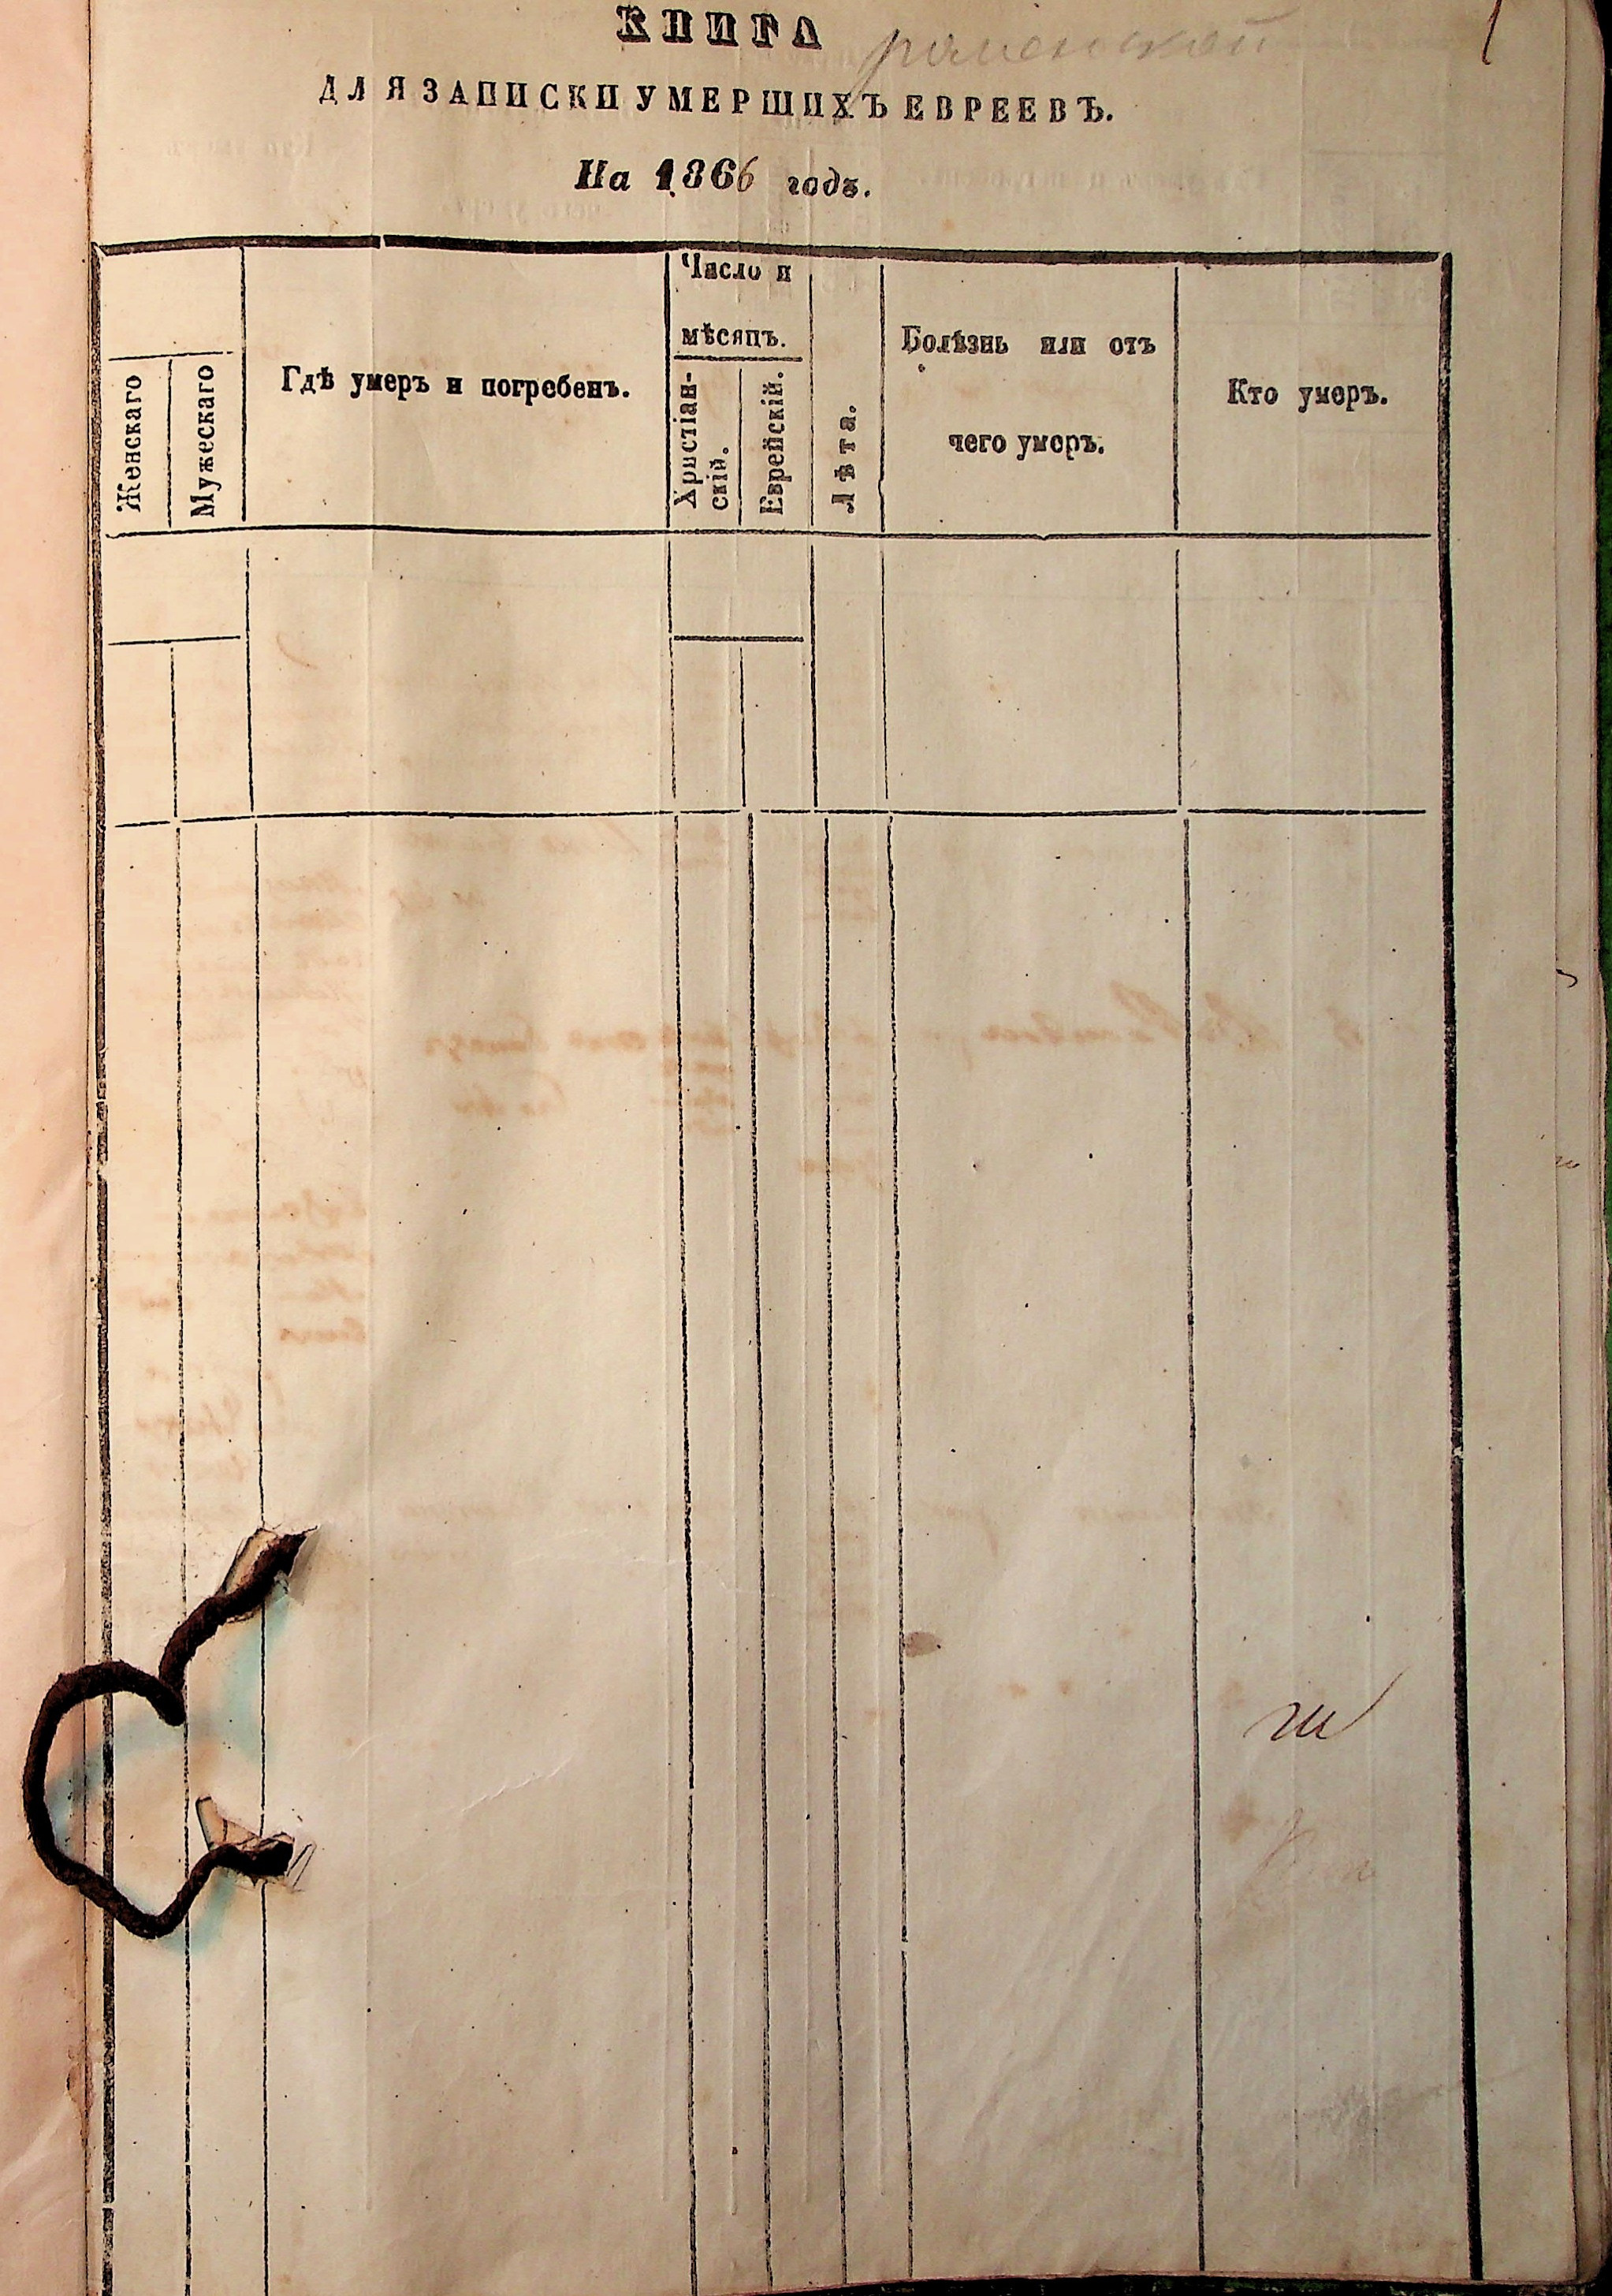 КНИГА
ДЛЯ ЗАПИСКИ УМЕРШИХЪ ЕВРЕЕВЪ.
На 1866 годъ.
Женскаго
Мужескаго
Гдѣ умеръ и погребенъ.
Число и
мѣсяцъ.
Христіан-
скій.
Еврейскій.
Лѣта.
Болѣзнь или отъ
чего умеръ.
Кто умеръ.